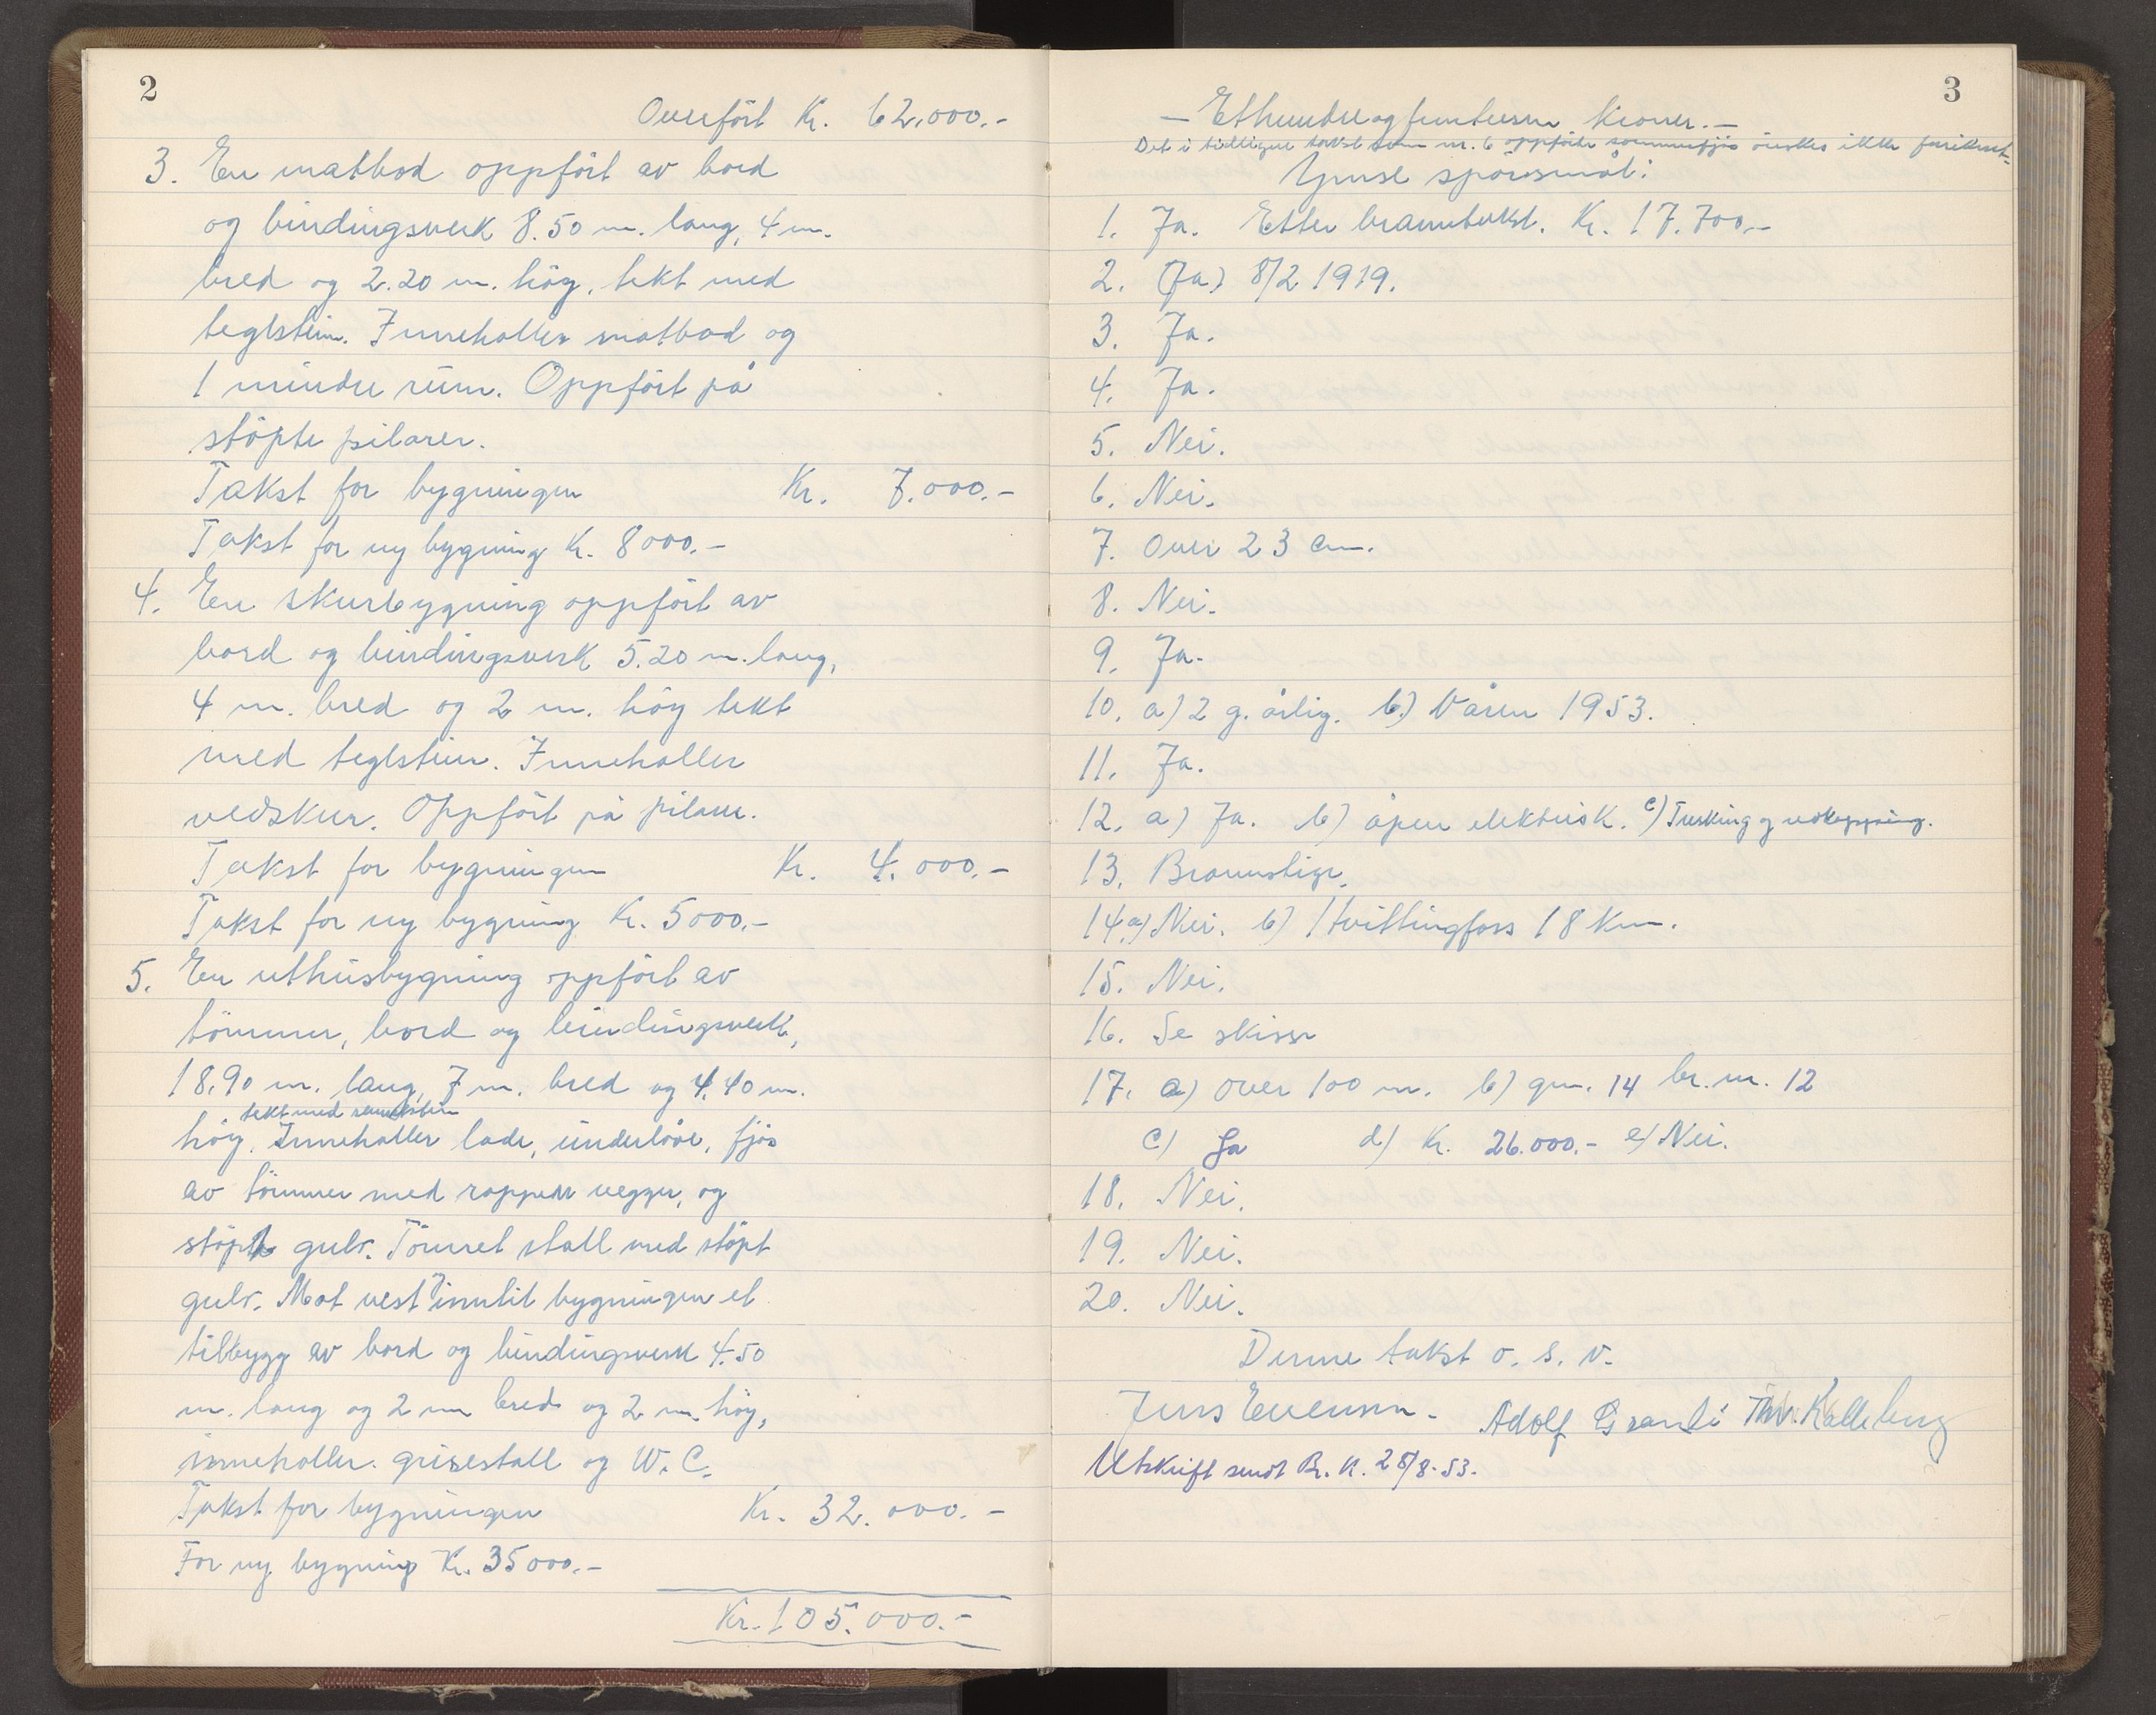 2
Overfört Kr. 62.000.-
3. En matbod oppfört av bord
og bindingsverk 8.50 m. lang, 4 m.
bred og 2.20 m. höy, tekt med
teglstein. Inneholler matbod og
1 mindre rum. Oppfört på
stöpte pilarer.
Takst for bygningen Kr. 7.000.-
Takst for ny bygning Kr. 8000.-
4. En skurbygning oppfört av
bord og bindingsverk 5.20 m. lang,
4 m. bred og 2 m. höy tekt
med teglstein. Inneholler
vedskur. Oppfört på pilarer.
Takst for bygningen Kr. 4.000.-
Takst for ny bygning Kr. 5000.-
5. En uthusbygning oppfört av
tömmer, bord og bindingsverk,
18.90 m. lang, 7 m. bred og 4.40 m.
tekt med
höy. Inneholler lade, underlåve, fjös
av tömmer med rappede vegger, og
stöpt gulv. Tömret stall med stöpt
gulv. Mot vest inntil bygningen et
tilbygg av bord og bindingsverk 4.50
m. lang og 2 m bred og 2 m. höy,
inneholler grisestall og W.C.
Takst for bygningen Kr. 32.000.-
For ny bygning Kr. 35000.-
Kr. 105.000.-
3
- Ethundreogfemtusen kroner.-
Det i tidligere takst som nr. 6 oppförte sommerfjös önskes ikke forsikret.
Ymse spörsmål:
1. Ja. Etter branntakst. Kr. 17.700.-
2. (Ja) 8/2 1919.
3. Ja.
4. Ja.
5. Nei.
6. Nei.
7. Over 23 cm.
8. Nei.
9. Ja.
10. a) 2 g. årlig. b) Våren 1953.
11. Ja.
12. a) Ja. b) åpen elektrisk. c) Tresking og vedkapping.
13. Brannstige.
14. a) Nei. b) Hvittingfoss 18 km.
15. Nei.
16. Se skisse
17. a) over 100 m. b) gnr. 14 br.nr. 12
c) Ja d) Kr. 26.000.- e) Nei.
18. Nei.
19. Nei.
20. Nei.
Denne takst o. s. v.
Jens Evensen. Adolf Granli Thv. Kalleberg
Utskrift sendt Br. K. 28/8-53.